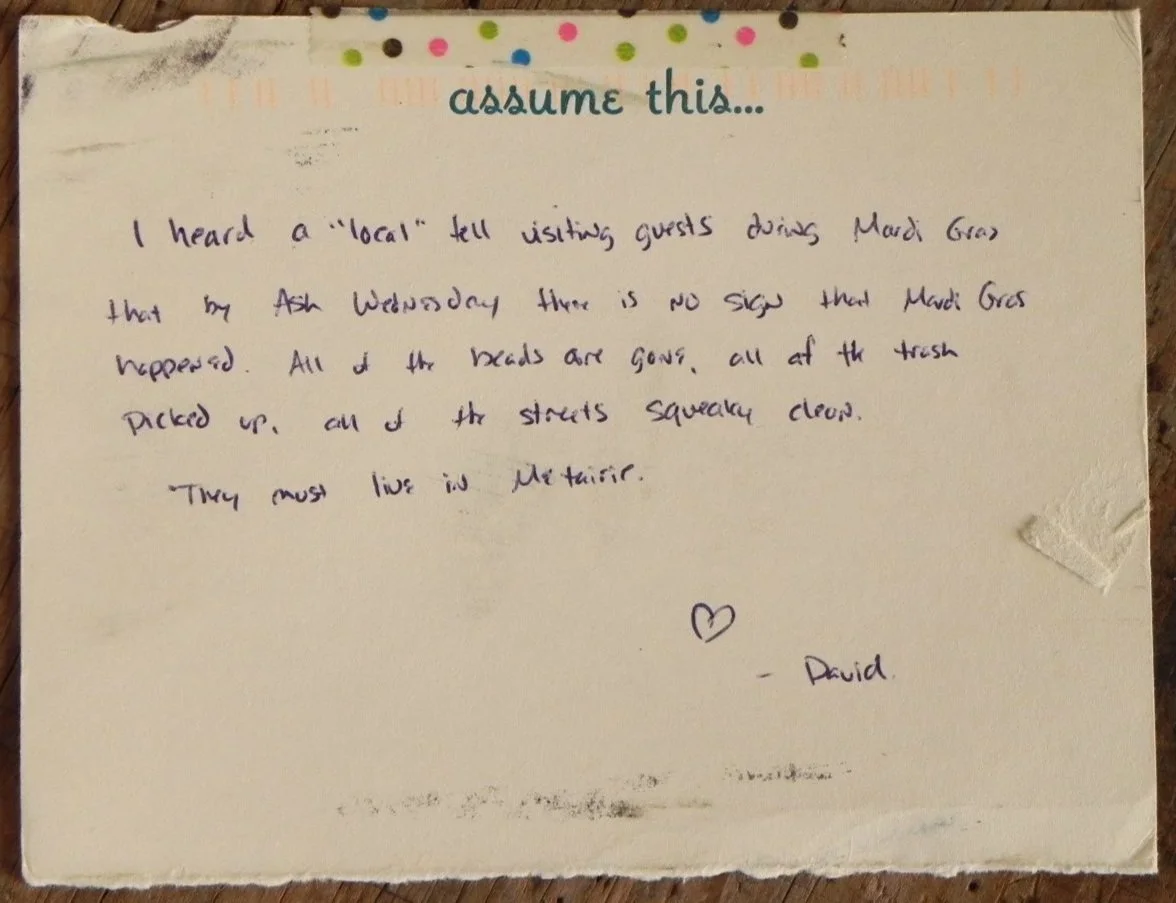 assume this...
I heard a "local" tell visiting guests during Mardi Gras
that by Ash Wednesday there is no sign that Mardi Gras
happened. All of the beads are gone, all of the trash
picked up, all of the streets squeaky clean.
They must live in Metairie.
♡
- David.